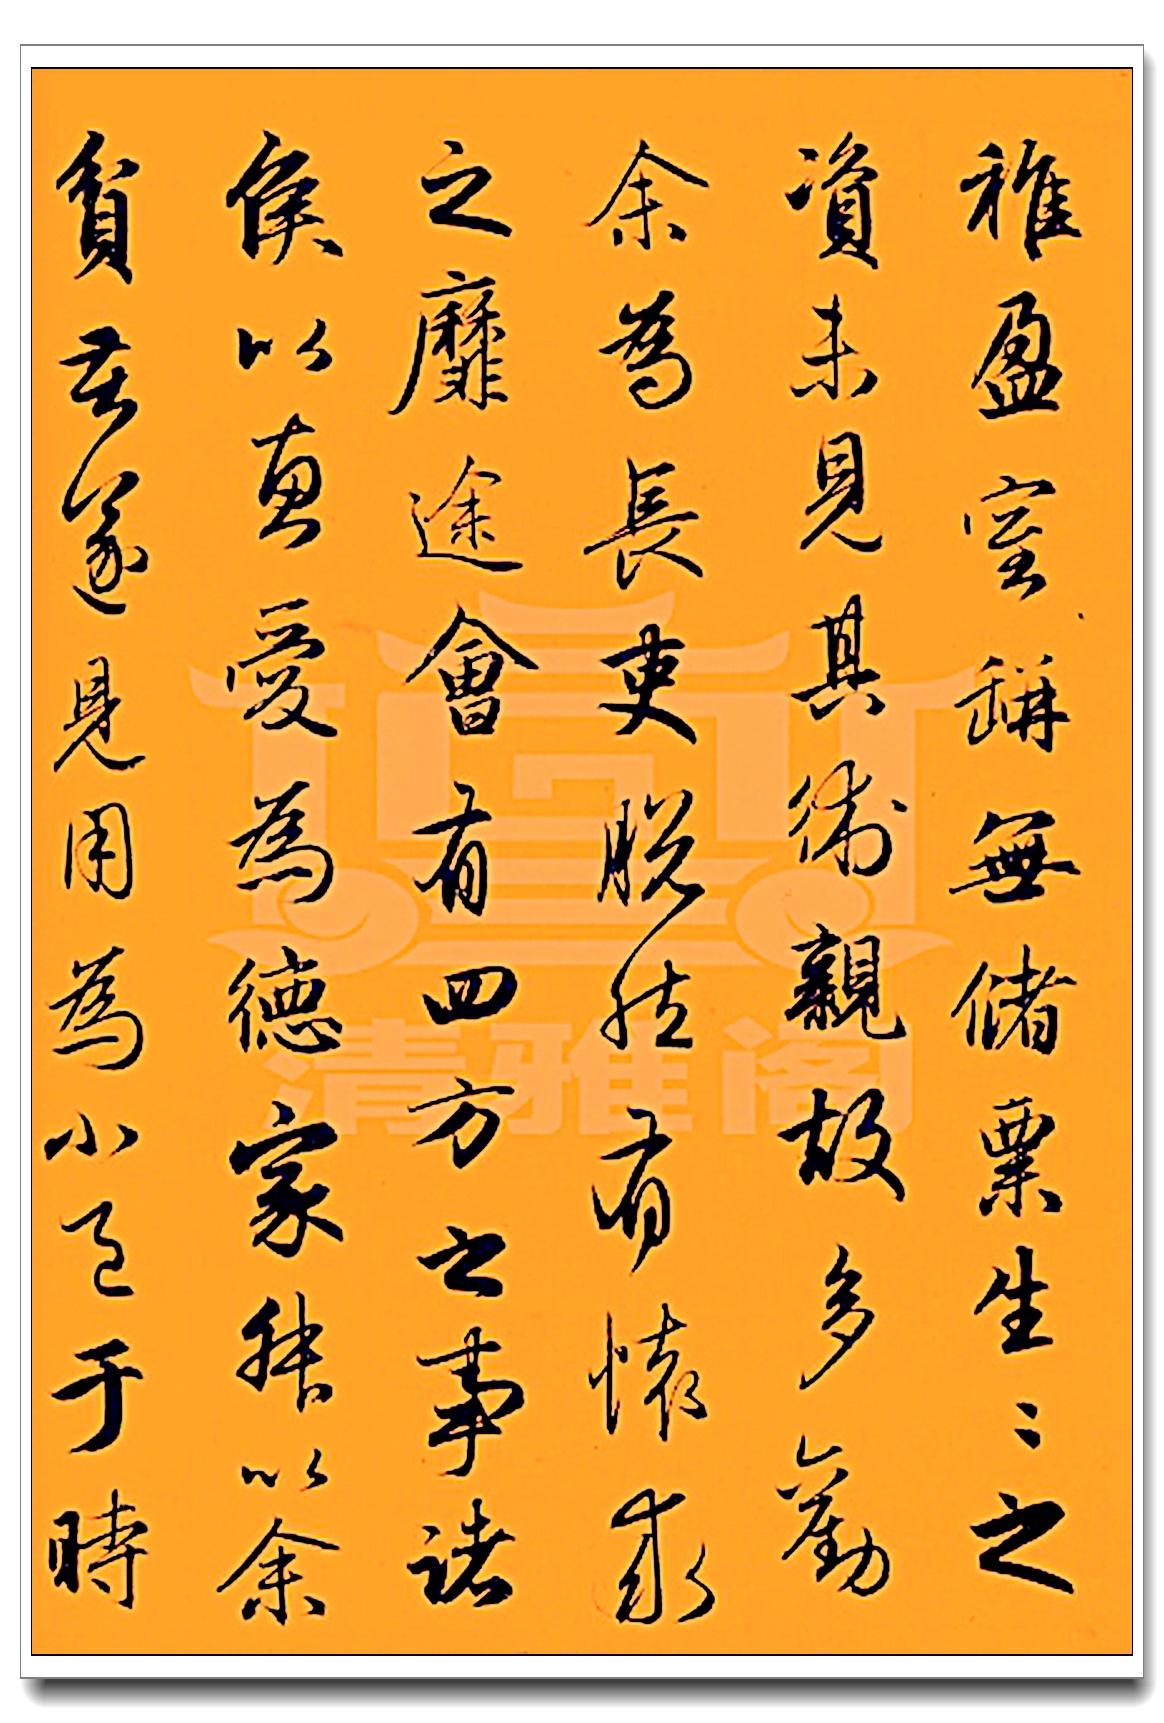 稚盈室缾無儲粟生〻之
資未見其術親故多勸
余為長吏脫然有懷求
之靡途會有四方之事諸
侯以惠愛為德家叔以余
貧苦遂見用為小邑于時
清雅阁